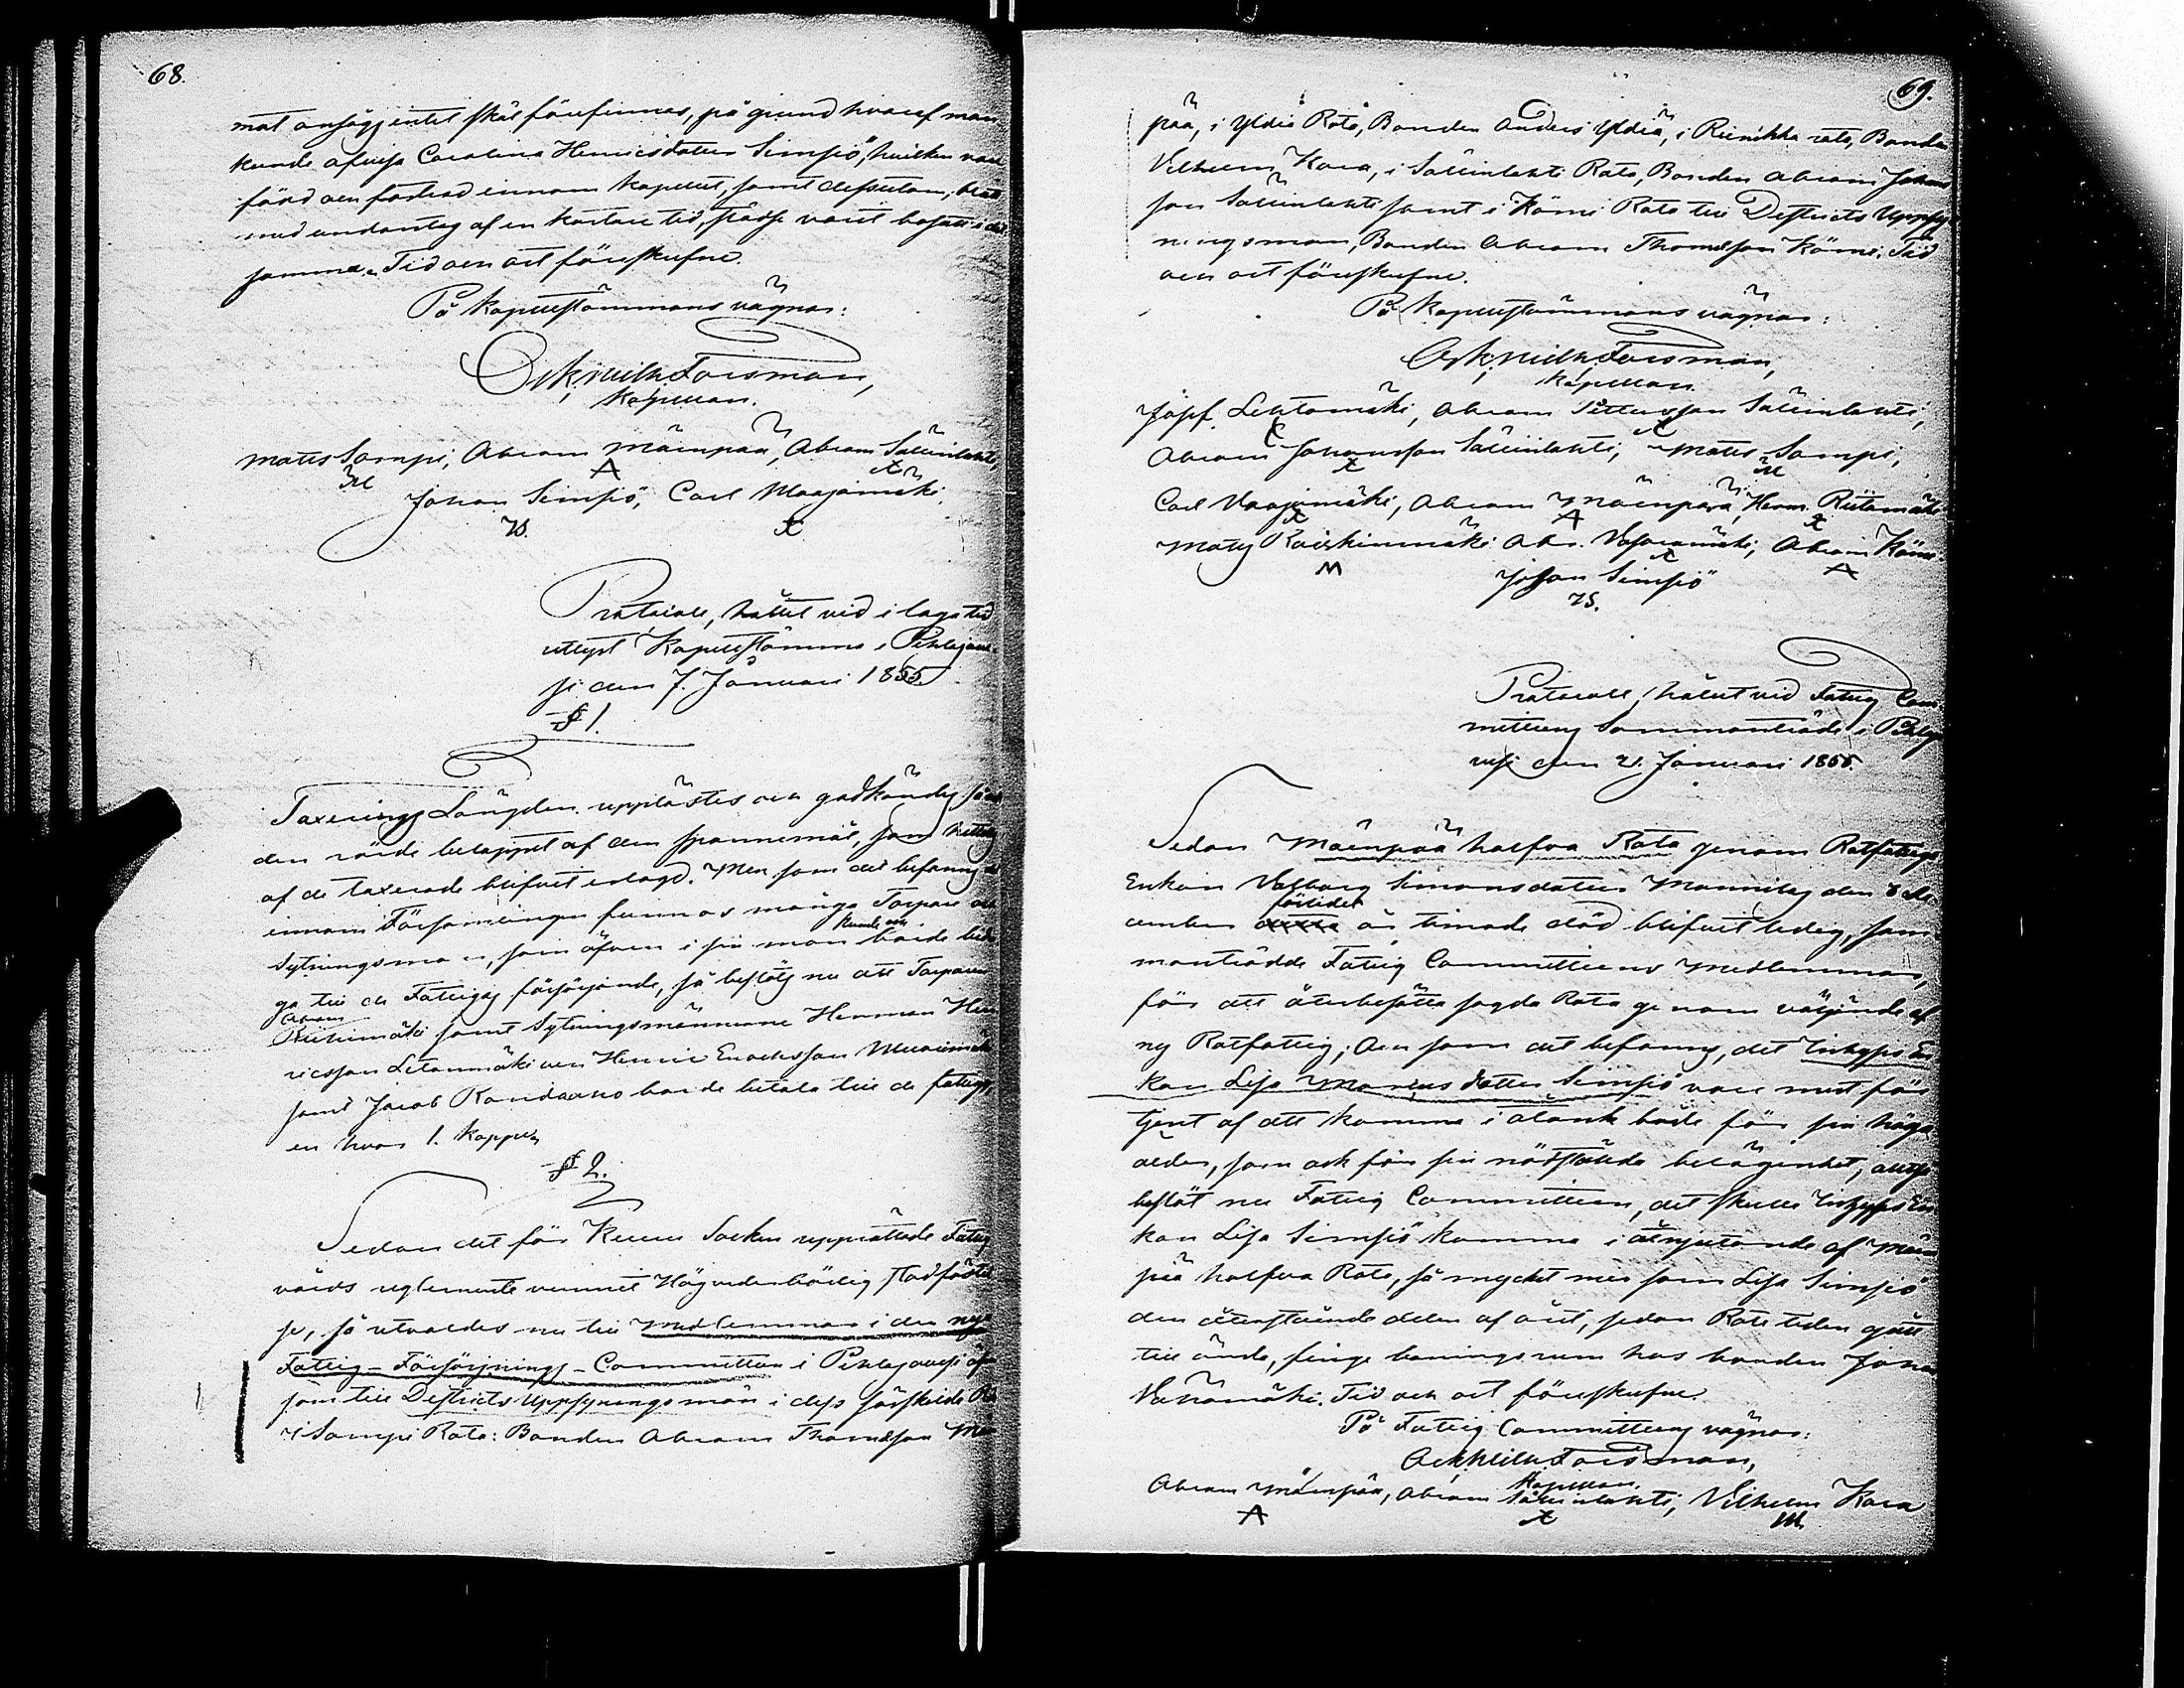 68.
mat ansågs intet skäl förefinnas, på grund hvaraf man
kunde afvisa Carolina Henricsdotter Simsiö, hvilken var
född och fostrad innom Kapellet, samt dessutom,
med undantag af en kortare tid, städse varit bosatt i det
samma. Tid och ort föreskrefne.
På Kapellstämmans vägnar:
Osk. Wilh. Forsman,
Kapellan.
Matts Sampi, Abram Mäenpää, Abram Sällinlahti,
M A X
Johan Simsiö, Carl Maajamäki.
IS. X
Protocoll, hållet vid i laga tid
utlyst Kapellstämma i Pihlajave-
si den 7. Januari 1855.
§ 1.
Taxerings Längden upplästes och godkändes
den rörde beloppet af den spannemål, som hittills
af de taxerade blifvit erlagd. Men som det befanns att
innom Församlingen funnos många Torpare och
Sytningsmän, som äfven i sin mon kunde och borde bidra-
ga till de Fattigas försörjande, så beslöts nu att Torparen
Abram
Riihimäki samt Sytningsmännerne Herman Hen-
ricsson Letonmäki och Henric Enochsson Murimäki
samt Jacob Randaaho borde betala till de fattiga,
en hvar 1. kappe.
§ 2.
Sedan det för Keuru Socken upprättade Fattig
vårds reglemente vunnit Högvederbörlig stadfästel-
se, så utvaldes nu till Medlemmar i den nya
Fattig-Försörjnings-Committén i Pihlajavesi äf-
som till Districts Uppsyningsmän i dess särskilda Ro
i Sampi Rote: Bonden Abram Thomasson Mäen
69.
pää, i Yldiä Rote, Bonden Anders Yldiä, i Riinikka rote, Bonden
Vilhelm Kara, i Sällinlahti Rote, Bonden Abram Johans
son Sällinlahti samt i Kömi Rote till Districts Uppsy-
ningsman, Bonden Abram Thomasson Kömi. Tid
och ort föreskrefne.
På Kapellstämmans vägnar:
Osk. Wilh. Forsman,
Kapellan.
Josef Lehtomäki, Abram Pettersson Sällinlahti,
X
Abram Johansson Sällinlahti, Matts Sampi,
X M
Carl Maajamäki, Abram Mäenpää, Herm. Riitamäki
X A X
Matts Koiskinmäki Abr. Vasaramäki, Abram Kömi
M X A
Johan Simsiö
IS.
Protocoll, hållet vid Fattig Com-
mitteens Sammanträde i Pihlaja
vesi den 21. Januari 1855.
Sedan Mäenpää halfva Rote genom Rotfattiga
Enkan Valborg Simonsdotter Mannilas den 8 De-
cember förlidet år timade död blifvit ledig, sam-
manträdde Fattig Committeens Medlemmar,
för att återbesätta sagda Rote genom väljande af
ny Rotfattig; Och som det befanns, det Inhyses En-
kan Lisa Marcusdotter Simsiö vore mest för-
tjent af att komma i åtank både för sin höga
ålder, som ock för sin nödställda belägenhet, alltså
beslöt nu Fattig Committeen, det skulle Inhyses En-
kan Lisa Simsiö komma i åtnjutande af Mäen
pää halfva Rote, så mycket mer som Lisa Simsiö
den återstående delen af året, sedan Rote tiden gått
till ända, finge boningsrum hos bonden Johan
Vehomäki. Tid och ort föreskrefne.
På Fattig Committeens vägnar:
Osk. Wilh. Forsman,
Kapellan.
Abram Mäenpää, Abram Sällinlahti, Vilhelm Kara
A X M